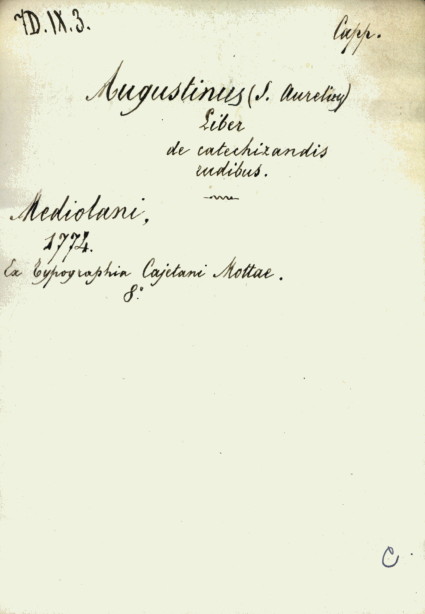 7D.IX.3.
Capp.
Augustinus (S. Aurelius)
Liber
de catechizandis
rudibus.
Mediolani,
1774.
Ex Typographia Cajetani Mottae.
8°
C